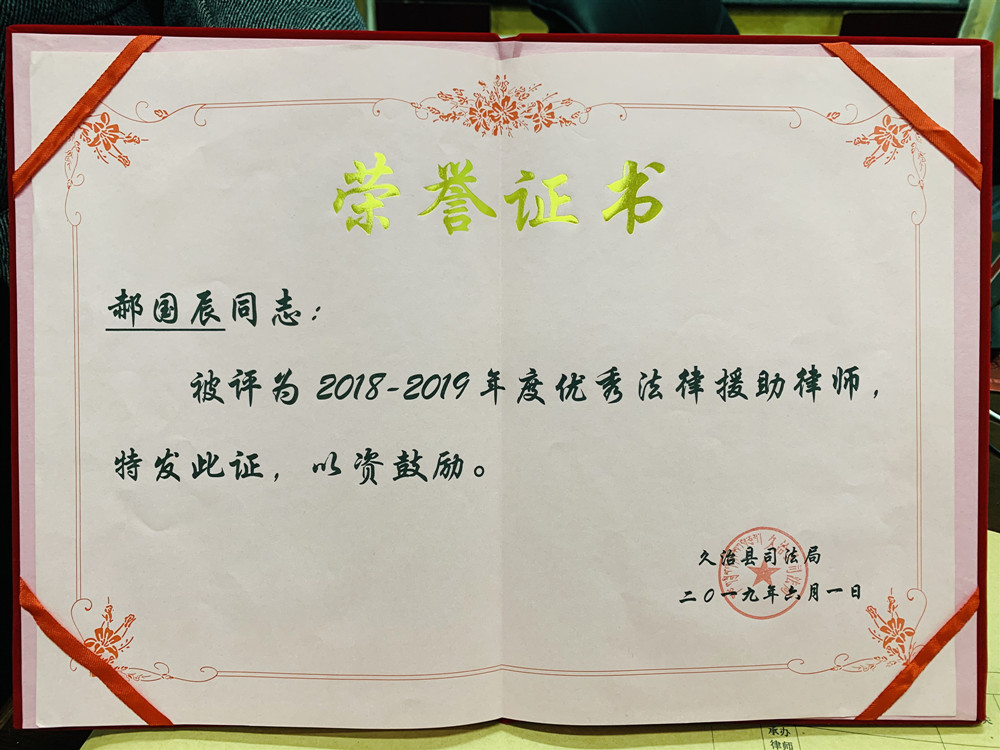 荣誉证书
郝国辰同志：
被评为2018-2019年度优秀法律援助律师，
特发此证，以资鼓励。
久治县司法局
二〇一九年六月一日
承办
律师